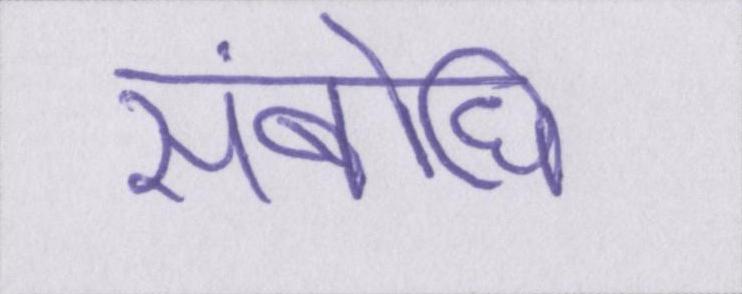 संबोधि